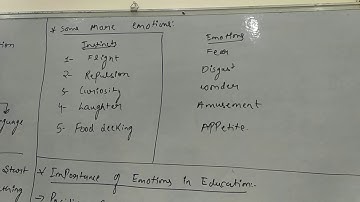 * Some More Emotions:
Instincts Emotions
1- Flight Fear
2- Repulsion Disgust
3- Curiosity Wonder
4- Laughter Amusement
5- Food Seeking Appetite.
* Importance of Emotions In Education:-